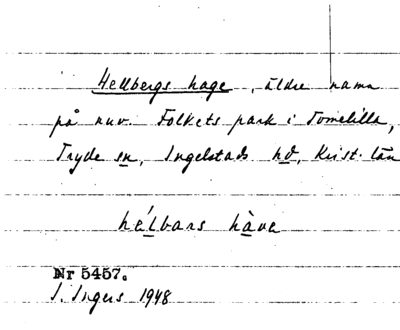 Hellbergs hage, äldre namn
på nuv. Folkets park i Tomelilla,
Tryde sn, Ingelstads hd, Krist. län
hélbars hàva
Nr 5457.
I. Ingers 1948